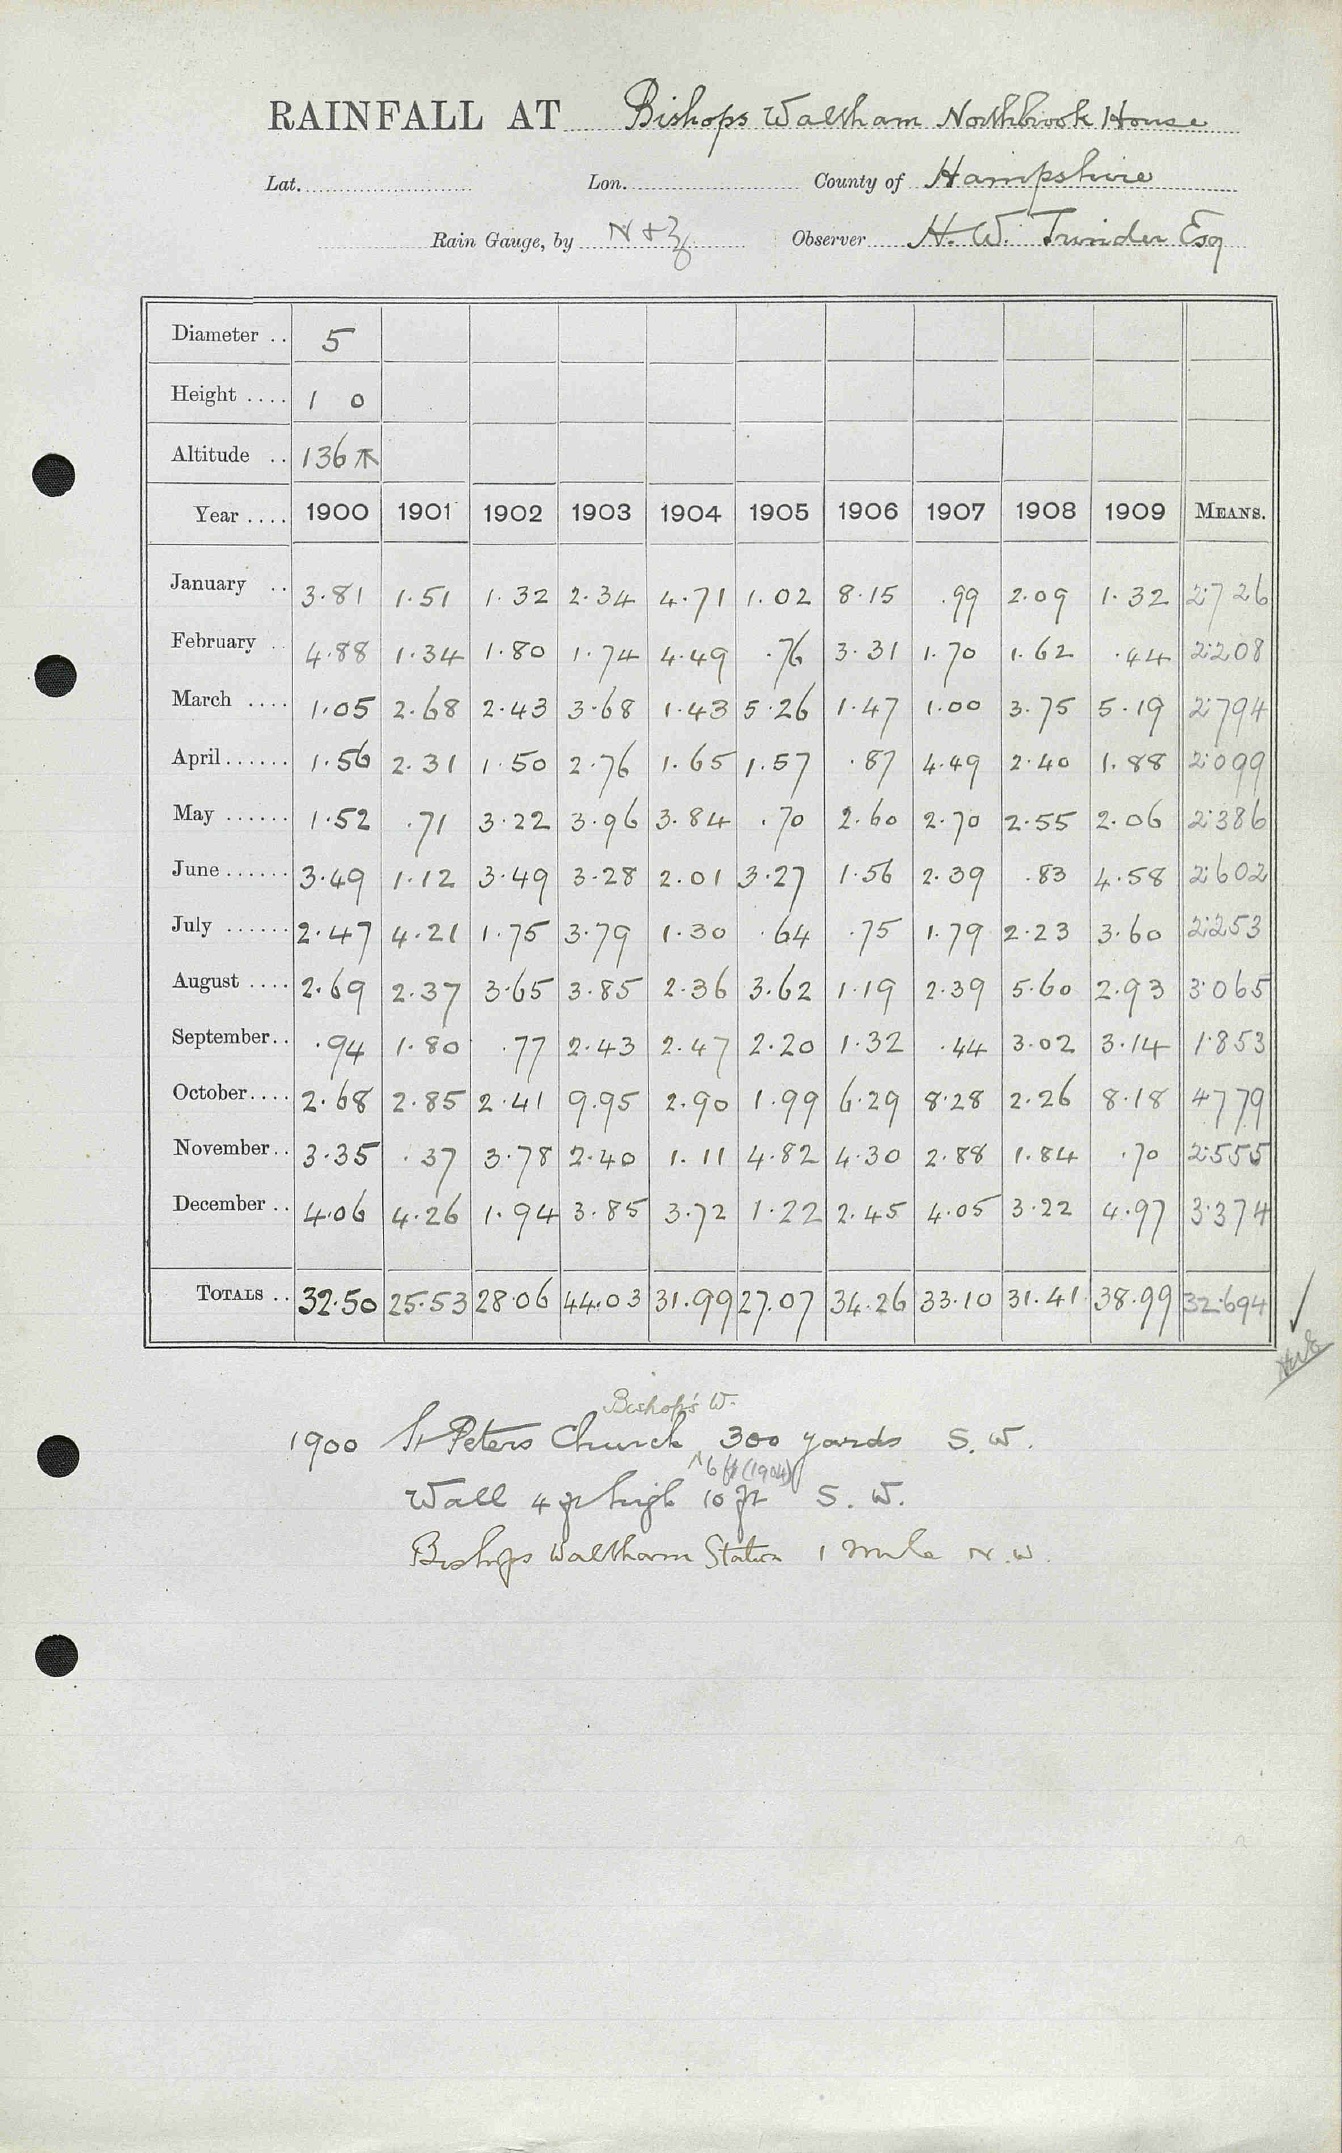 RAINFALL AT Bishops Waltham Northbrook House
Lat. Lon. County of Hampshire
Rain Gauge, by N & Z Observer H. W. Trinder Esq
Diameter .. 5
Height .... 1 0
Altitude .. 136
Year .... 1900 1901 1902 1903 1904 1905 1906 1907 1908 1909 MEANS.
January .. 3.81 1.51 1.32 2.34 4.71 1.02 8.15 .99 2.09 1.32 2.726
February .. 4.88 1.34 1.80 1.74 4.49 .76 3.31 1.70 1.62 .44 2.208
March .... 1.05 2.68 2.43 3.68 1.43 5.26 1.47 1.00 3.75 5.19 2.794
April...... 1.56 2.31 1.50 2.76 1.65 1.57 .87 4.49 2.40 1.88 2.099
May ...... 1.52 .71 3.22 3.96 3.84 .70 2.60 2.70 2.55 2.06 2.386
June...... 3.49 1.12 3.49 3.28 2.01 3.27 1.56 2.39 .83 4.58 2.602
July ...... 2.47 4.21 1.75 3.79 1.30 .64 .75 1.79 2.23 3.60 2.253
August .... 2.69 2.37 3.65 3.85 2.36 3.62 1.19 2.39 5.60 2.93 3.065
September.. .94 1.80 .77 2.43 2.47 2.20 1.32 .44 3.02 3.14 1.853
October.... 2.68 2.85 2.41 9.95 2.90 1.99 6.29 8.28 2.26 8.18 4.779
November.. 3.35 .37 3.78 2.40 1.11 4.82 4.30 2.88 1.84 .70 2.555
December .. 4.06 4.26 1.94 3.85 3.72 1.22 2.45 4.05 3.22 4.97 3.374
TOTALS .. 32.50 25.53 28.06 44.03 31.99 27.07 34.26 33.10 31.41 38.99 32.694
Bishop's W.
1900 St Peters Church 300 yards S. W.
6 ft (1904)
Wall 4 ft high 10 ft S. W.
Bishops Waltham Station 1 mile N. W.